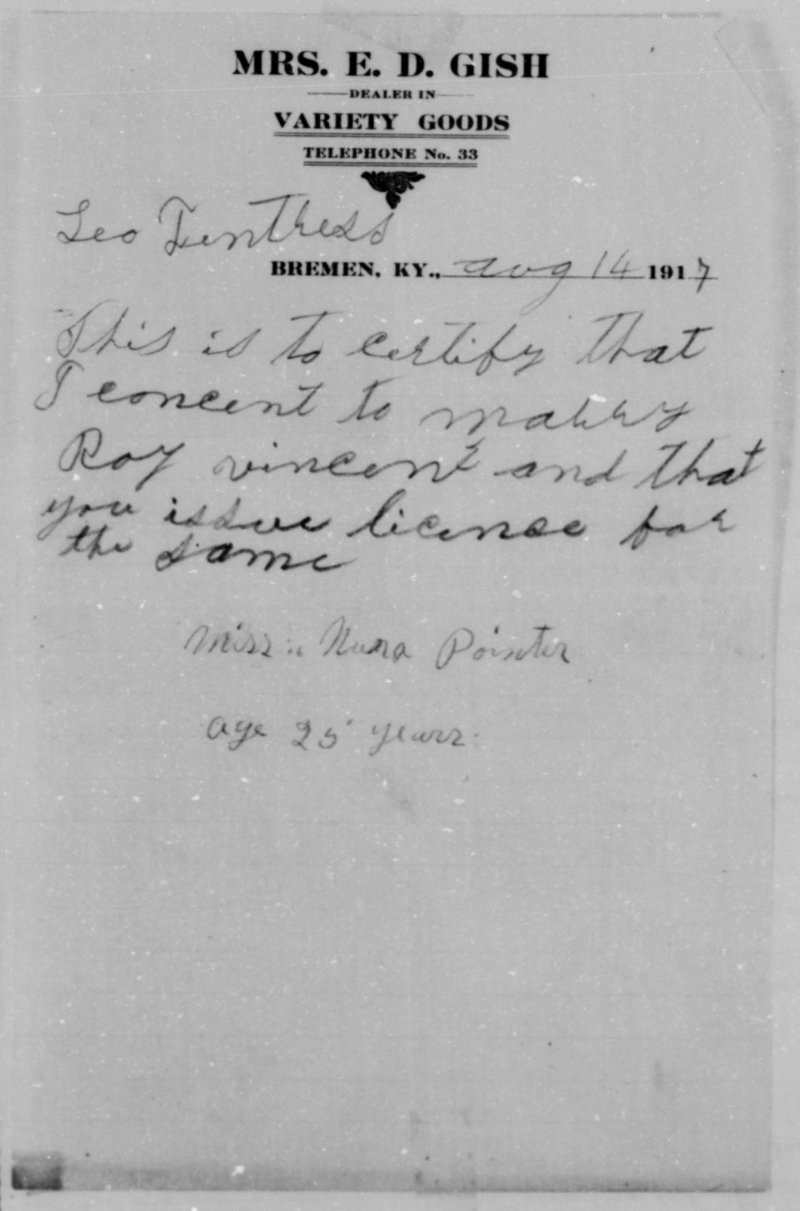 MRS. E. D. GISH
DEALER IN
VARIETY GOODS
TELEPHONE No. 33
Leo Fentress
BREMEN, KY., aug 14 1917
This is to certify that
I concent to marry
Roy vincent and that
you issue licence for
the same
Miss Pointer
age 25 years